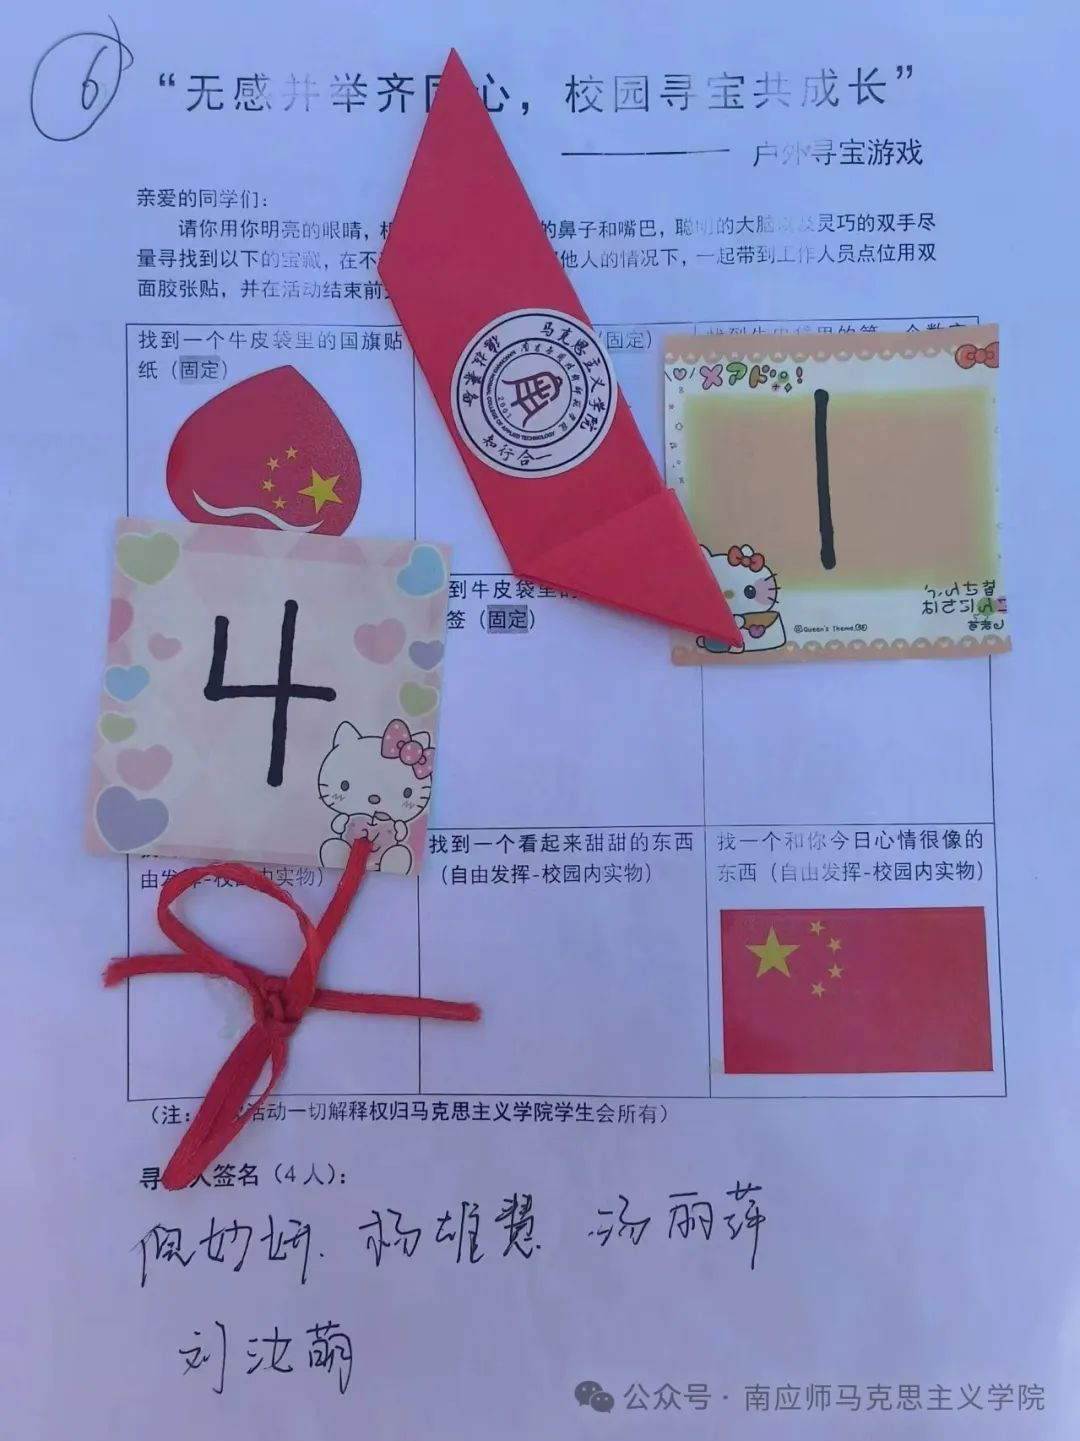 6
“无感并举齐同心，校园寻宝共成长”
——户外寻宝游戏
亲爱的同学们：
请你用你明亮的眼睛，的鼻子和嘴巴，聪明的大脑以及灵巧的双手尽
量寻找到以下的宝藏，在不他人的情况下，一起带到工作人员点位用双
面胶张贴，并在活动结束前
找到一个牛皮袋里的国旗贴
纸（固定）
（固定）
马克思主义学院
知行合一
COLLEGE OF APPLIED TECHNOLOGY
2001
メアド
1
©Queen's Theme
4
到牛皮袋里的
签（固定）
由发挥-校园内实物）
找到一个看起来甜甜的东西
（自由发挥-校园内实物）
找一个和你今日心情很像的
东西（自由发挥-校园内实物）
（注：活动一切解释权归马克思主义学院学生会所有）
寻人签名（4人）：
倪妙妍 杨雄慧 汤丽萍
刘沈萌
公众号·南应师马克思主义学院